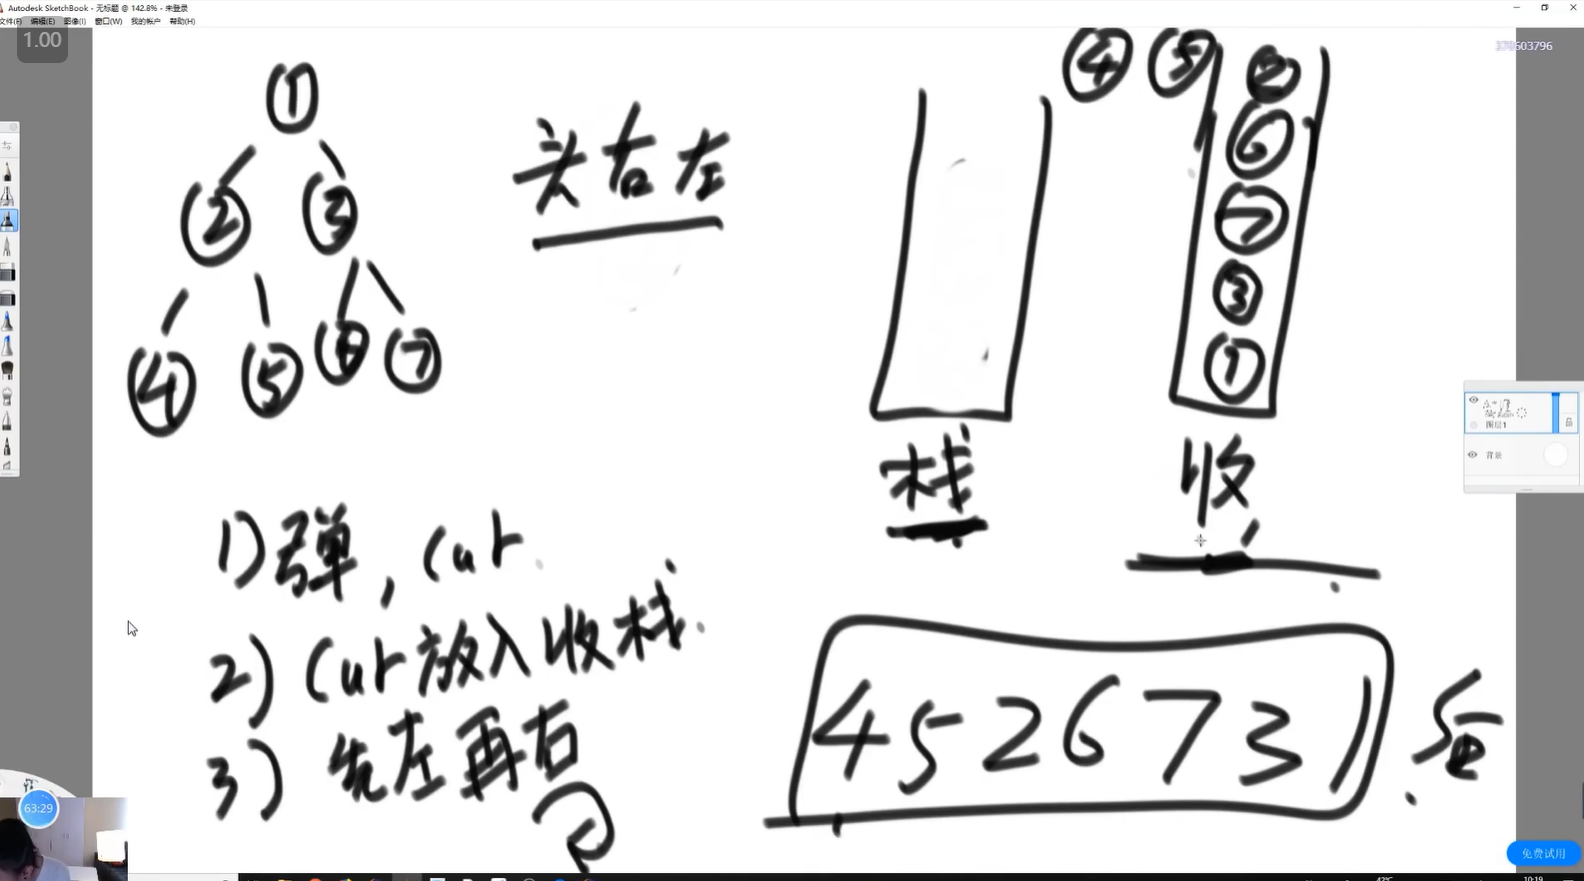 Autodesk SketchBook - 无标题 @ 142.8% - 未登录
文件(F) 编辑(E) 图像(I) 窗口(W) 我的帐户 帮助(H)
1.00
①
② ③
④ ⑤ ⑥ ⑦
头右左
④ ⑤ ②
⑥
⑦
③
①
栈 收
1) 弹, cur
2) cur放入收栈.
3) 先左再右
4 5 2 6 7 3 1
图层1
背景
63:29
免费试用
10:19